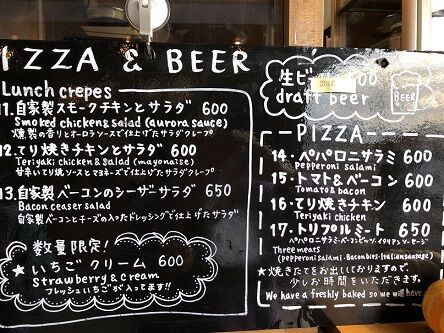 IZZA & BEER
Lunch crepes
11. 自家製スモークチキンとサラダ 600
Smoked chicken & salad (aurora sauce)
燻製の香りとオーロラソースで仕上げたサラダクレープ
12. てり焼きチキンとサラダ 600
Teriyaki chicken & Salad (mayonaise)
甘辛いてり焼ソースとマヨネーズで仕上げたサラダクレープ
13. 自家製ベーコンのシーザーサラダ 650
Bacon ceaser salad
自家製ベーコンとチーズの入ったドレッシングで仕上げたサラダ
数量限定!
★ いちごクリーム 600
Strawberry & cream
フレッシュいちごが入ってます!!
生ビ 600
draft beer
BEER
PIZZA
14. ペパロニサラミ 600
Pepperoni salami
15. トマト&ベーコン 600
Tomato & bacon
16. てり焼きチキン 600
Teriyaki chicken
17. トリプルミート 650
Three meats
(pepperoni salami・Baconbits・Italian sausage)
★ 焼きたてをお出ししておりますので、
少しお時間をいただきます。
We have a freshly baked so we will have